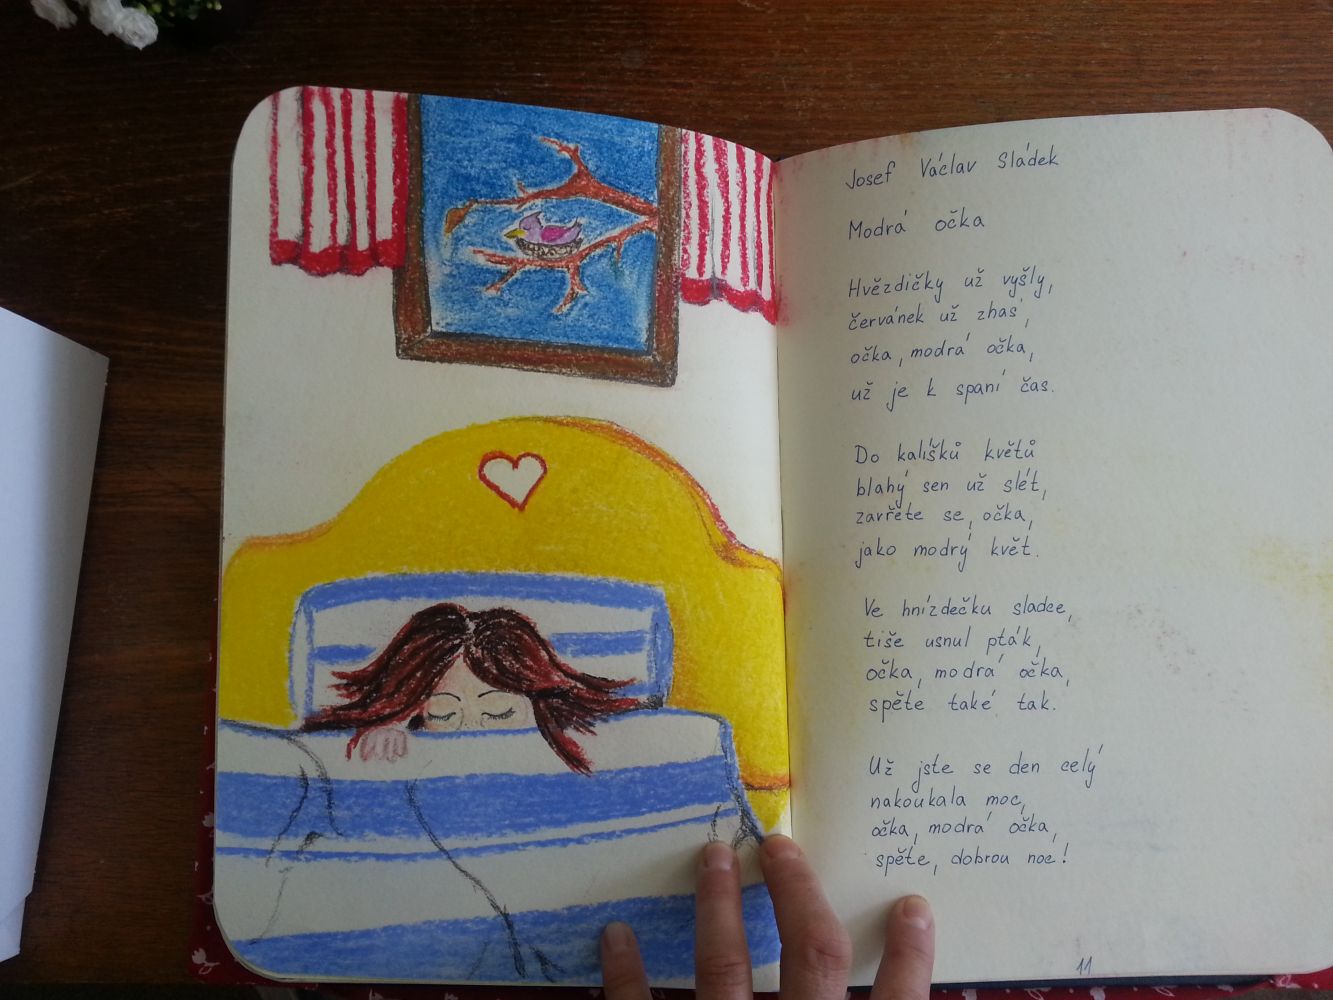 Josef Václav Sládek
Modrá očka
Hvězdičky už vyšly,
červánek už zhas,
očka, modrá očka,
už je k spaní čas.
Do kalíšků květů
blahý sen už slét,
zavřete se, očka,
jako modrý květ.
Ve hnízdečku sladce,
tiše usnul pták,
očka, modrá očka,
spěte také tak.
Už jste se den celý
nakoukala moc,
očka, modrá očka,
spěte, dobrou noc!
11